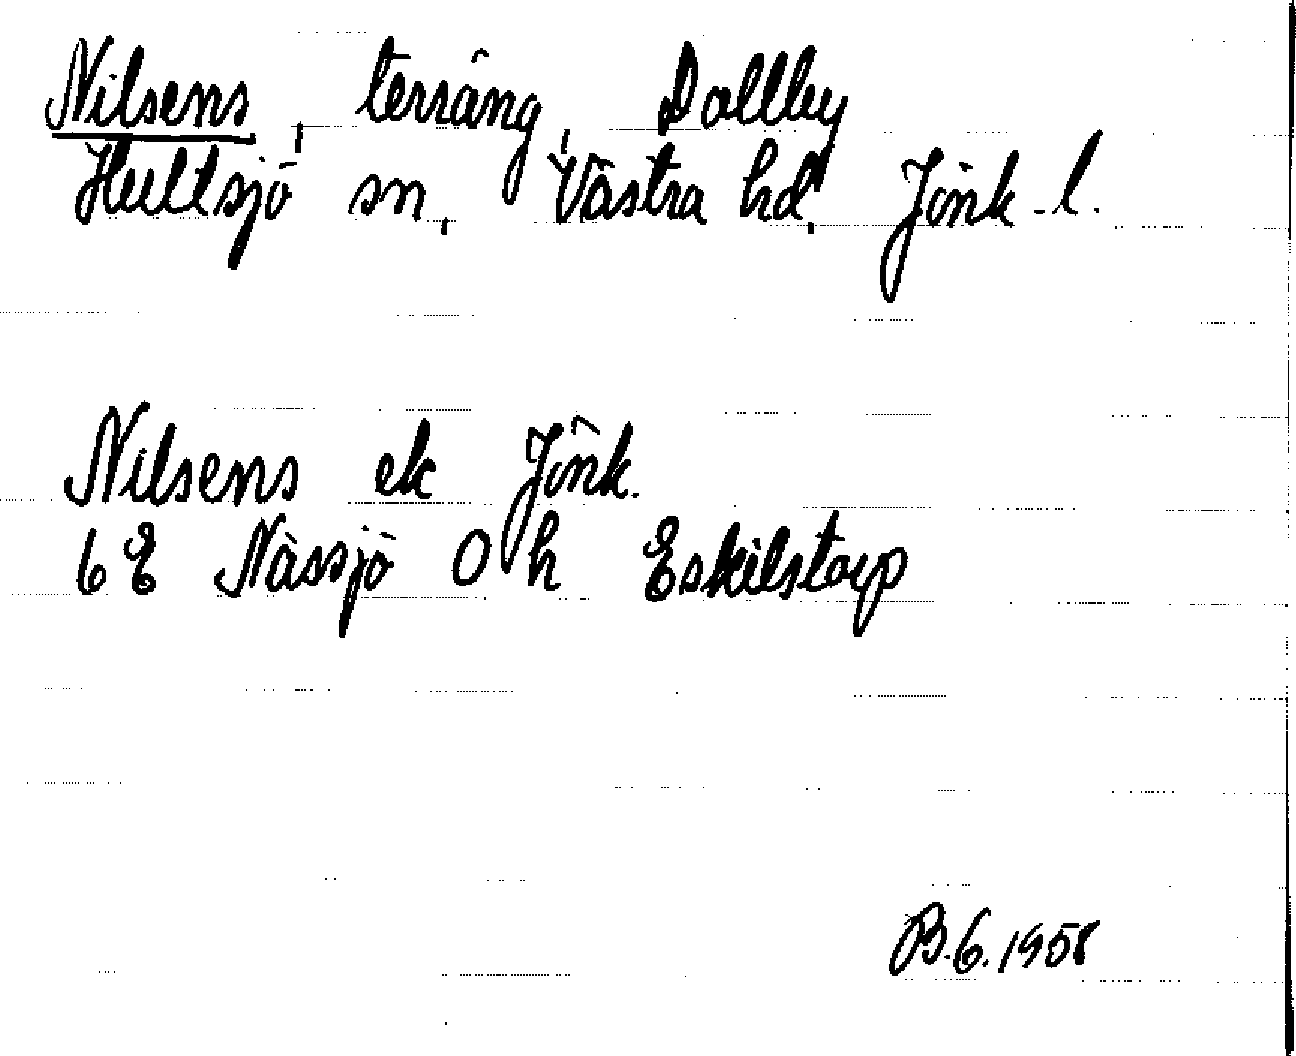 Nilsens, terräng, Dallby
Hultsjö sn, Västra hd, Jönk. l.
Nilsens ek Jönk.
6E Nässjö 0 h Eskilstorp
B.6.1958